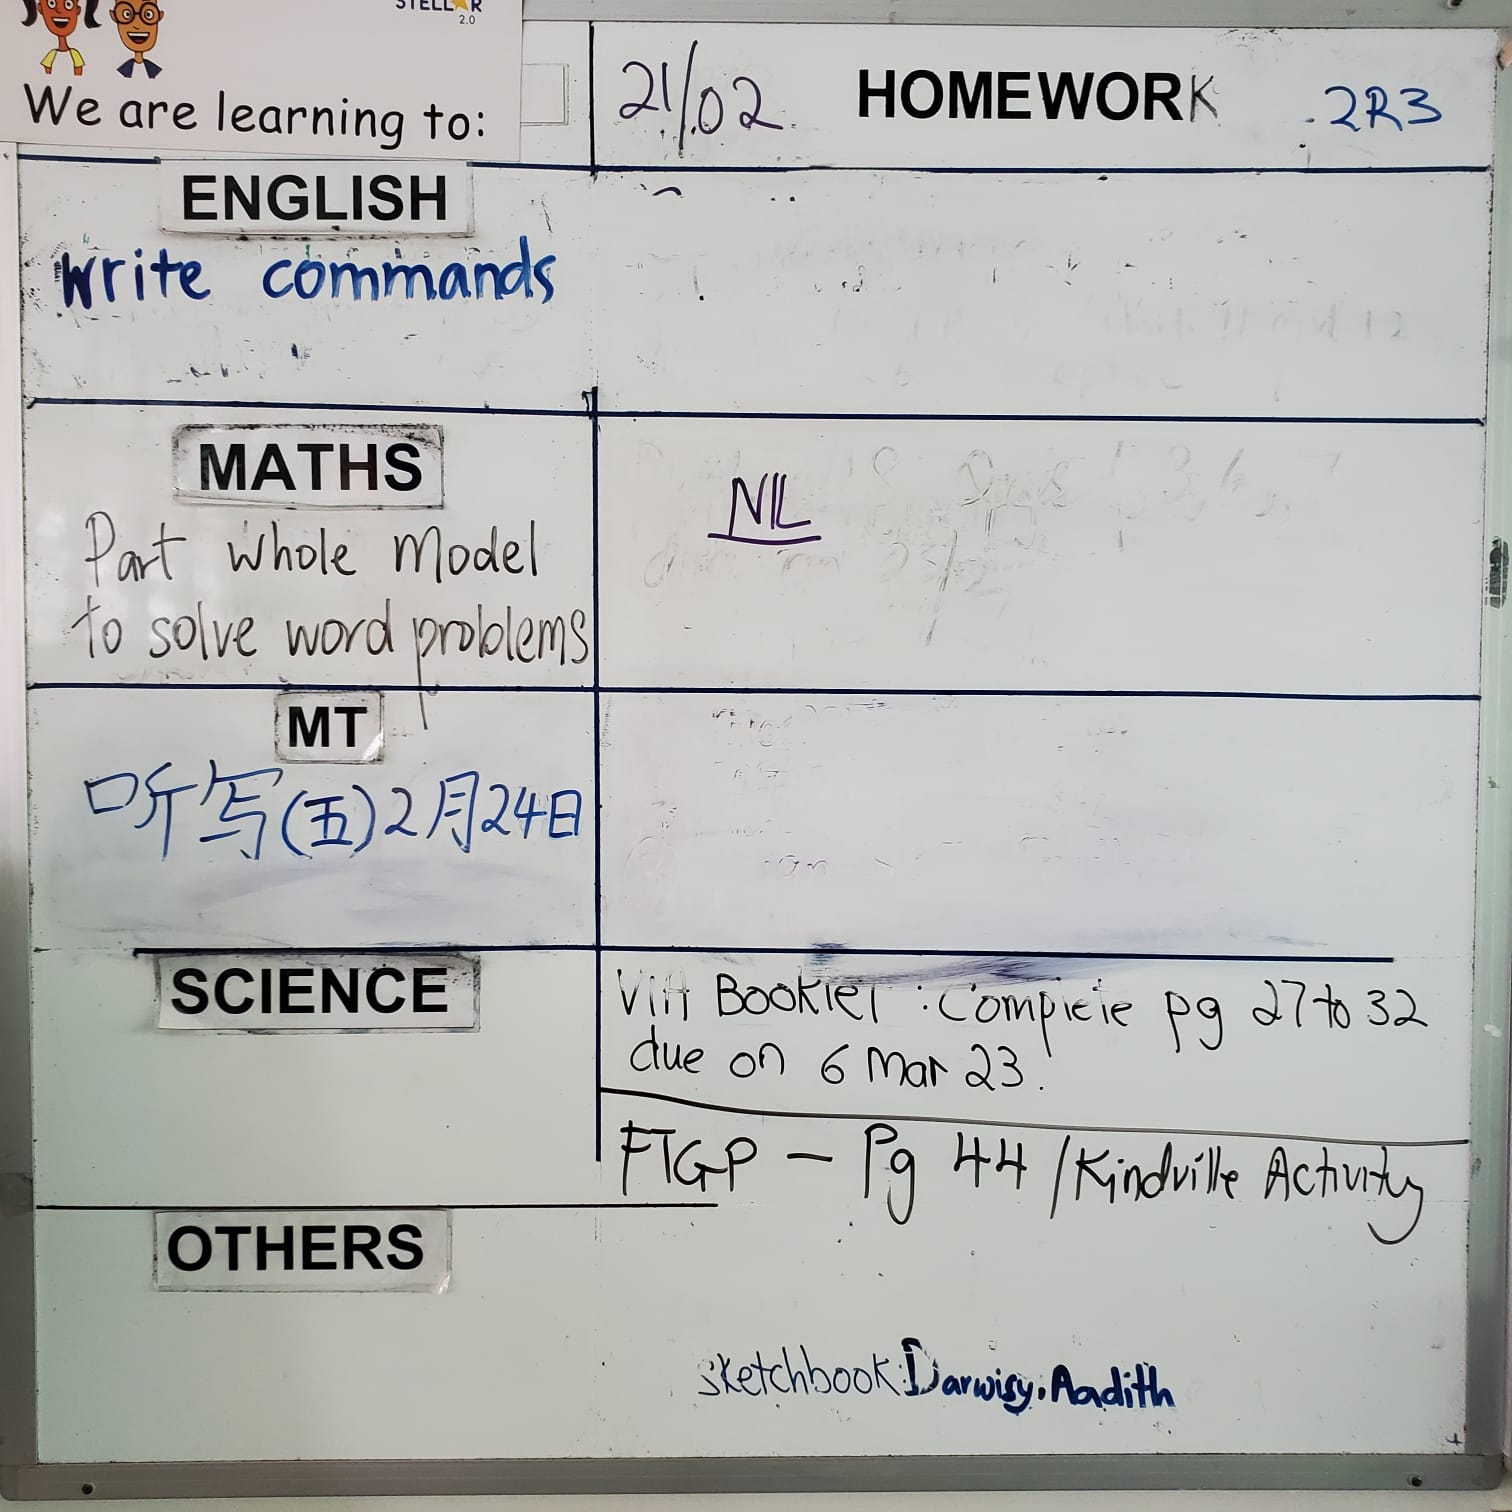 STELLAR
2.0
We are learning to:
21/02 HOMEWORK 2R3
ENGLISH
Write commands
MATHS
NIL
Part whole Model
to solve word problems
MT
听写(五)2月24日
SCIENCE
VIA Booklet : Complete pg 27 to 32
due on 6 Mar 23.
FTGP - Pg 44 / Kindville Activity
OTHERS
Sketchbook: Darwisy, Aadith